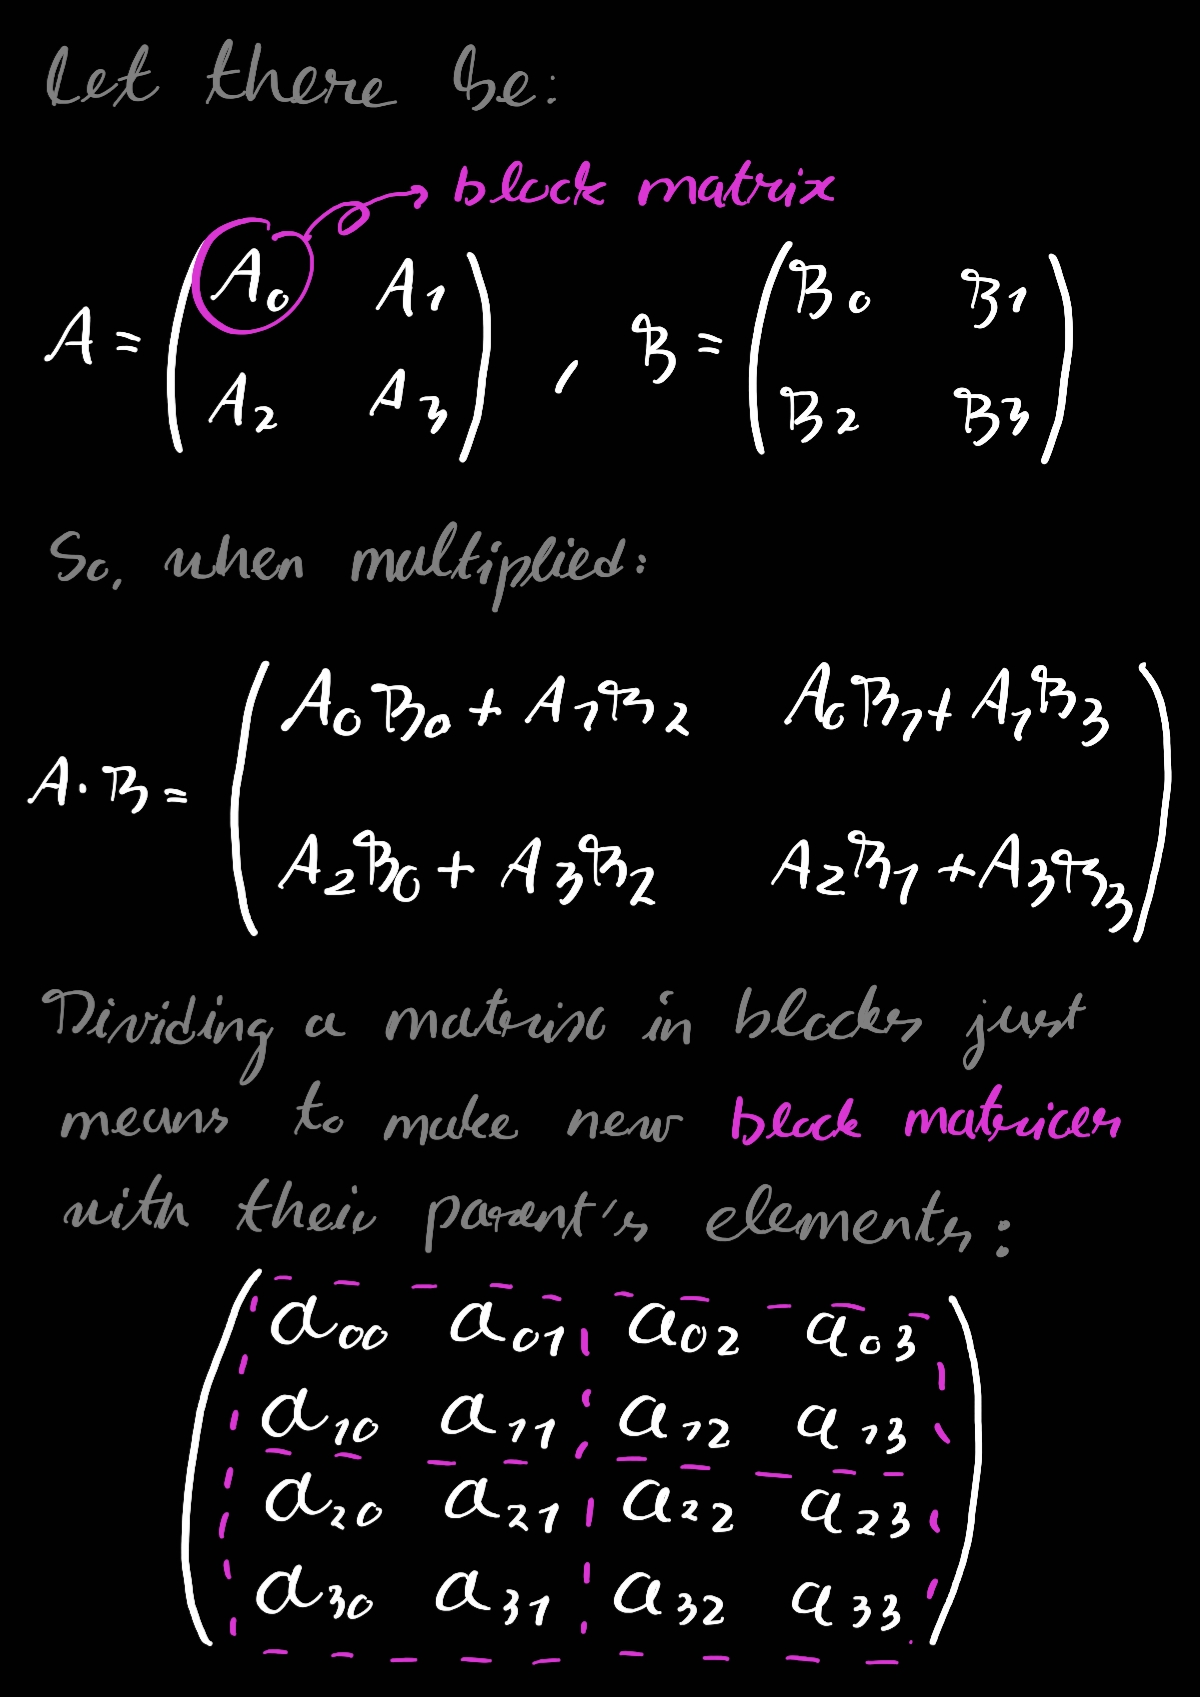 Let there be:
block matrix
A = ( A₀ A₁ ) , B = ( B₀ B₁ )
A₂ A₃ B₂ B₃
So, when multiplied:
A₀B₀ + A₁B₂ A₀B₁ + A₁B₃
A · B =
A₂B₀ + A₃B₂ A₂B₁ + A₃B₃
Dividing a matrix in blocks just
means to make new block matrices
with their parent's elements:
a₀₀ a₀₁ a₀₂ a₀₃
a₁₀ a₁₁ a₁₂ a₁₃
a₂₀ a₂₁ a₂₂ a₂₃
a₃₀ a₃₁ a₃₂ a₃₃